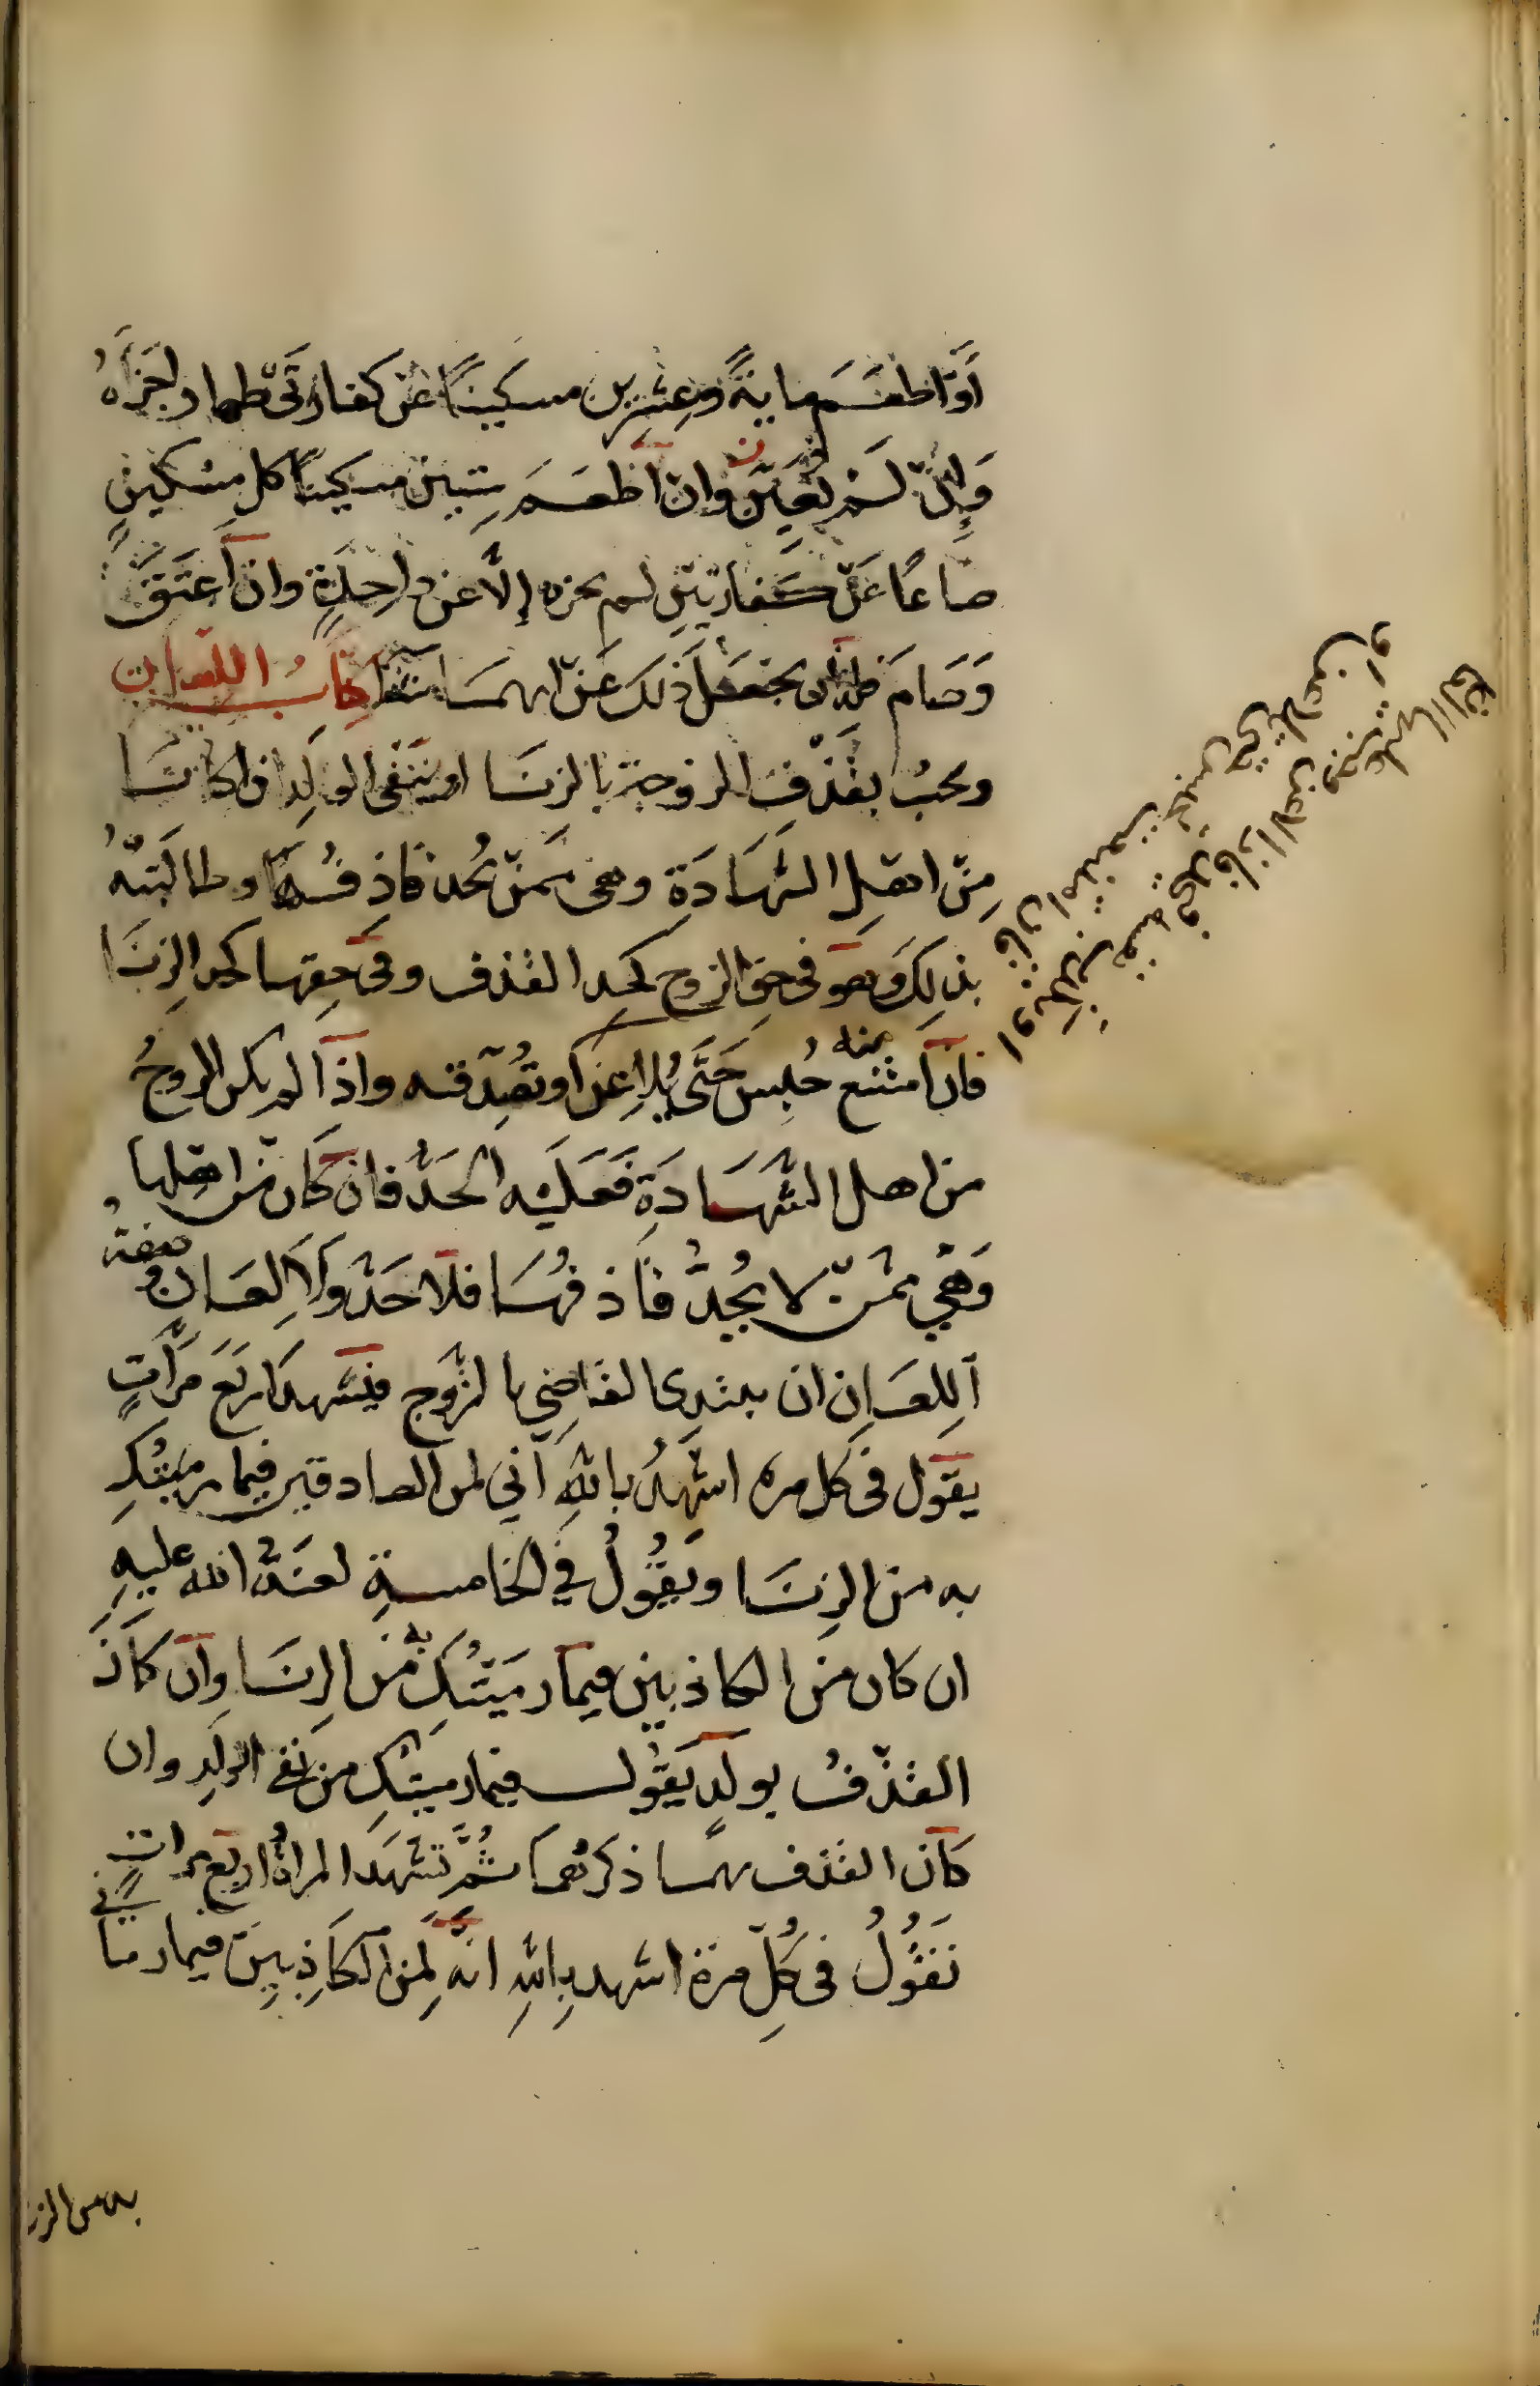 أو أطعم ماية وعشرين مسكينًا عن كفارتي ظهار اجزأهُ
وإن لم يُعين وان أطعَمَ ستين مسكينًا كل مسكينٍ
صاعًا عن كفارتين لم يجزه إلّا عن واحِدَةٍ وان أعتَقَ
وَصَامَ
كتابُ اللعان
ويجبُ بقَذفِ الزوجة بالزنَا او بنفي الولَدِ اذا كانَا
مِن اهلِ الشهَادَةِ وهي ممن يُحد قاذِفُهَا وطالبَتهُ
بذلِكَ وهو في حق الزوج كحدِ القذف وفي حقِهَا كحد الزِنَا
فان امتنع منه حُبِسَ حَتَّى يُلاعِنَ أو تُصَدِّقه واذا لم يكن الزوجُ
من اهل الشهَادَةِ فَعَلَيه الحَدُّ فان كان من اهلها
وَهي ممن لا يُحَدُّ قاذفهَا فلا حَدَّ ولا لِعَان وصفةُ
اللِعَانِ ان يبتدِى القاضِي بالزوج فيَشهد اربَعَ مَرَّاتٍ
يقول في كل مره اشهدُ باللهِ اني لمن الصادقين فيما رميتُكِ
به من الزِنَا ويَقُولُ في الخامسةِ لعنَةُ الله عليهِ
ان كان من الكاذبين فيما رميتُكِ به من الزِنَا وان كانَ
القذفُ بولَدٍ يَقُول فيما رميتُكِ من نفي الولَدِ وان
كان القذف بهمَا ذكرهُمَا ثُمَّ تشهَد المراةُ اربَعَ مرات
تقُولُ في كُلِّ مرة اشهد بِاللهِ انَّه لمن الكاذِبِينَ فيما رمَانِي
به من الزنا